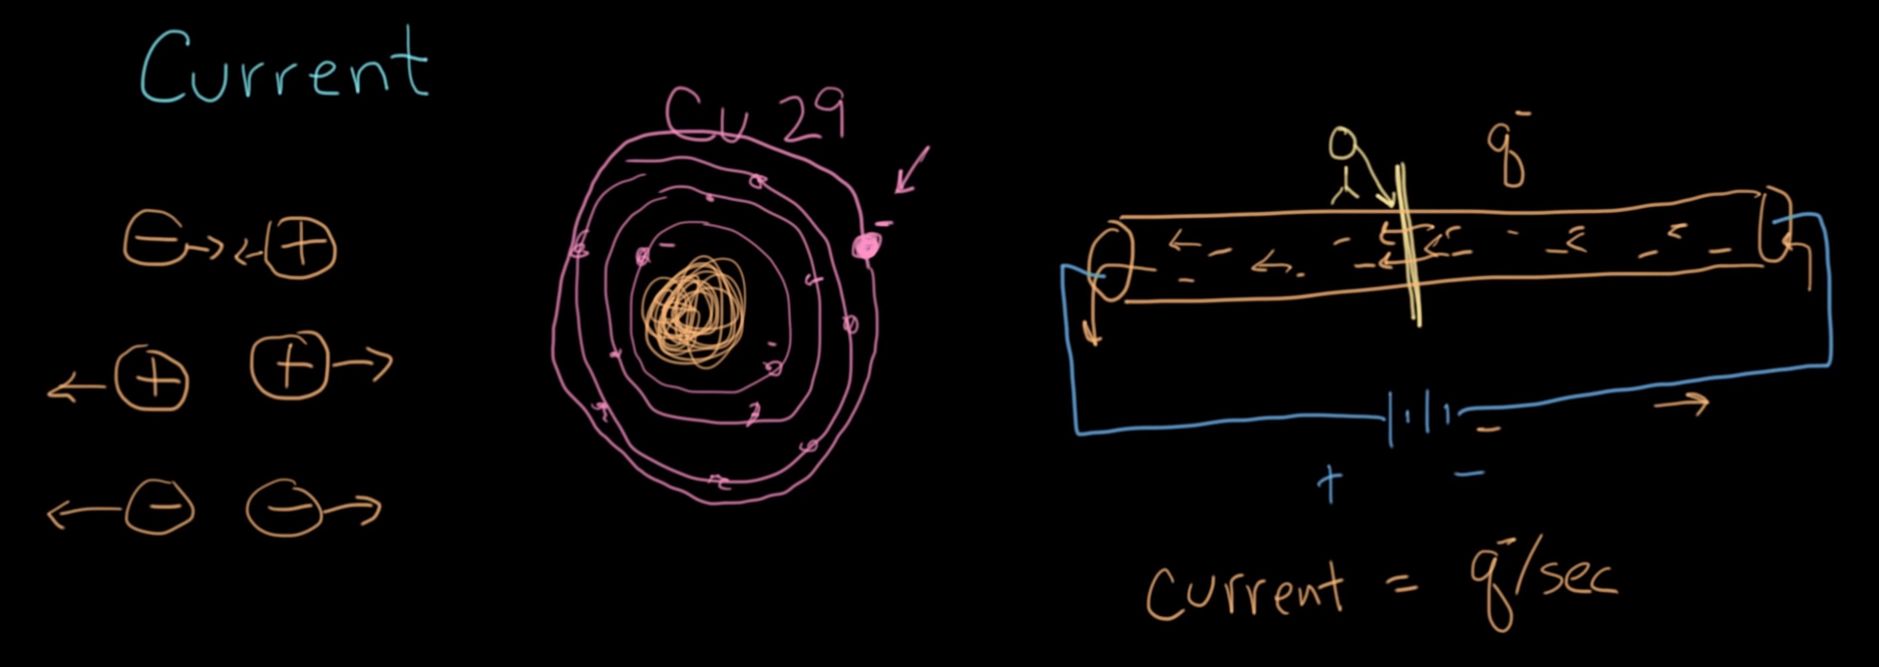 Current
Cu 29
q⁻
+ −
Current = q⁻/sec